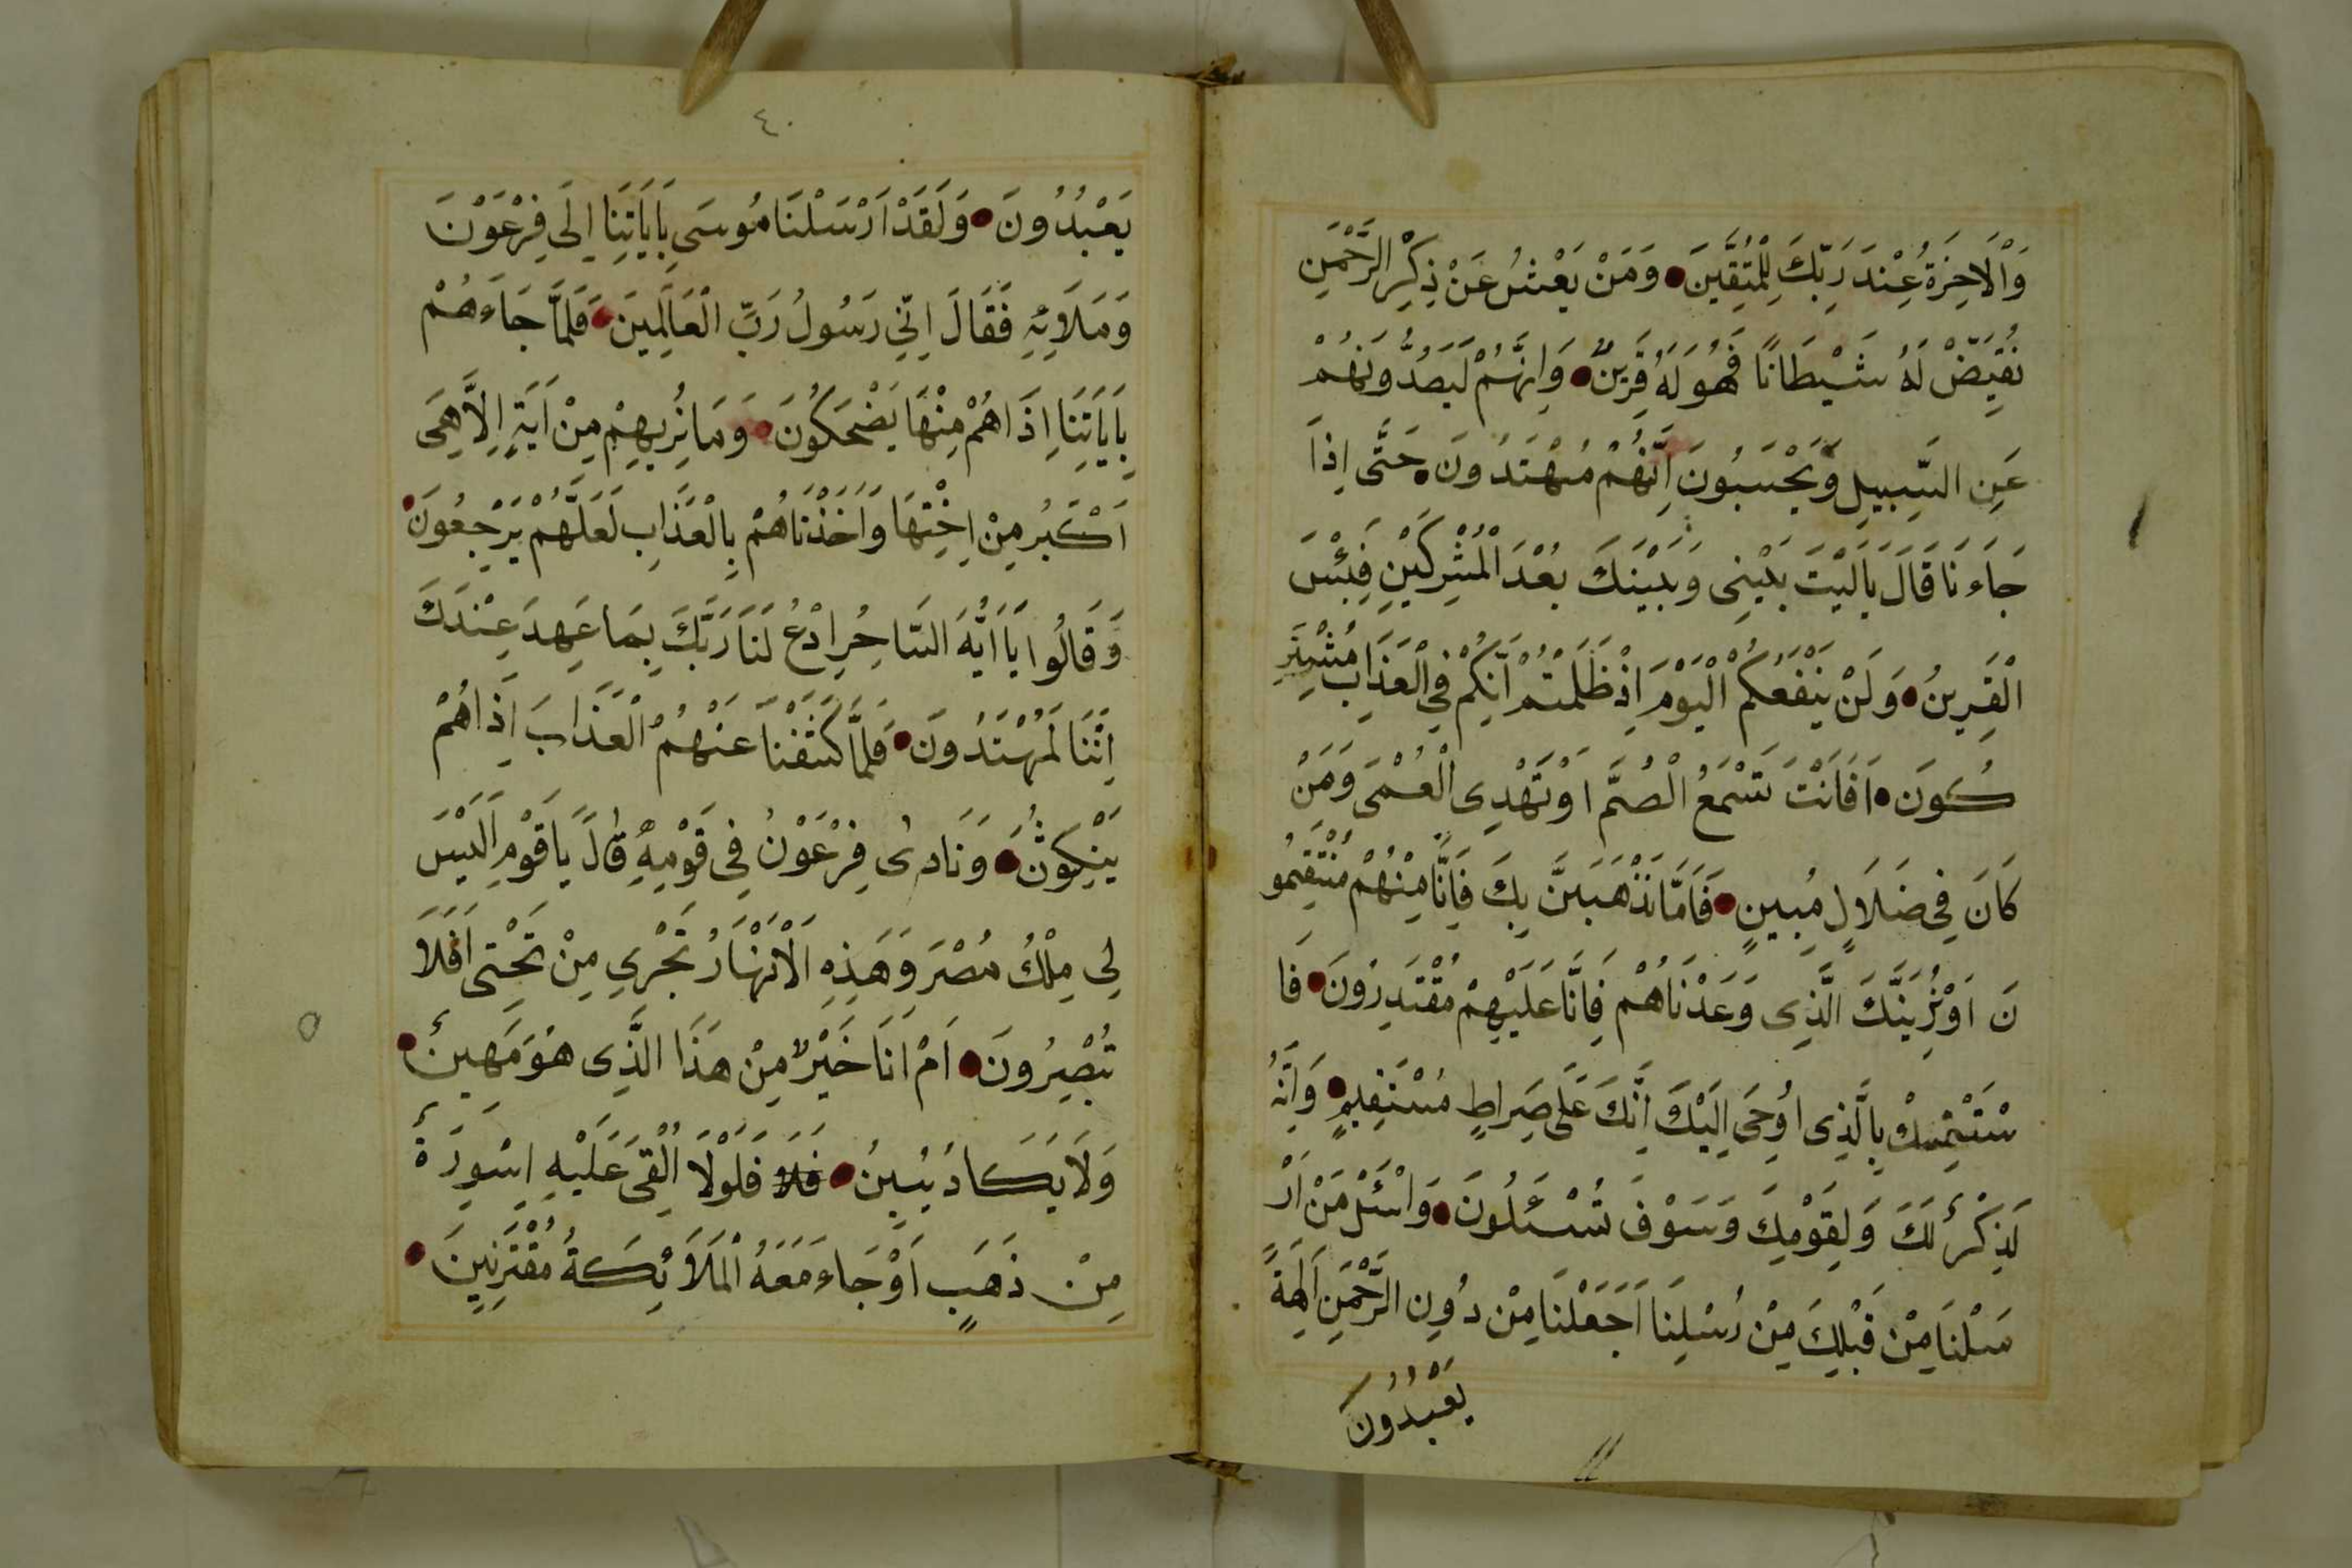 وَالْاَخِرَةُ عِنْدَ رَبِّكَ لِلْمُتَّقِينَ وَمَنْ يَعْشُ عَنْ ذِكْرِ الرَّحْمَنِ
نُقَيِّضْ لَهُ شَيْطَانًا فَهُوَ لَهُ قَرِينٌ وَاِنَّهُمْ لَيَصُدُّونَهُمْ
عَنِ السَّبِيلِ وَيَحْسَبُونَ اَنَّهُمْ مُهْتَدُونَ حَتَّى اِذَا
جَاءَنَا قَالَ يَالَيْتَ بَيْنِى وَبَيْنَكَ بُعْدَ الْمُشْرِكَيْنِ فَبِئْسَ
الْقَرِينُ وَلَنْ يَنْفَعَكُمُ الْيَوْمَ اِذْ ظَلَمْتُمْ اَنَّكُمْ فِى الْعَذَابِ مُشْتَرِ
كُونَ اَفَاَنْتَ تَسْمَعُ الْصُمَّ اَوْ تَهْدِى الْعُمْىَ وَمَنْ
كَانَ فِى ضَلَالٍ مُبِينٍ فَاَمَّا نَذْهَبَنَّ بِكَ فَاِنَّا مِنْهُمْ مُنْتَقِمُو
نَ اَوْ نُرِيَنَّكَ الَّذِى وَعَدْنَاهُمْ فَاِنَّا عَلَيْهِمْ مُقْتَدِرُونَ فَا
سْتَمْسِكْ بِالَّذِى اُوحِىَ اِلَيْكَ اِنَّكَ عَلَى صِرَاطٍ مُسْتَقِيمٍ وَاِنَّهُ
لَذِكْرٌ لَكَ وَلِقَوْمِكَ وَسَوْفَ تُسْئَلُونَ وَاسْئَلْ مَنْ اَرْ
سَلْنَا مِنْ قَبْلِكَ مِنْ رُسُلِنَا اَجَعَلْنَا مِنْ دُونِ الرَّحْمَنِ اَلِهَةً
يَعْبُدُونَ
٤٠
يَعْبُدُونَ وَلَقَدْ اَرْسَلْنَا مُوسَى بِاَيَاتِنَا اِلَى فِرْعَوْنَ
وَمَلَائِهِ فَقَالَ اِنِّى رَسُولُ رَبِّ الْعَالَمِينَ فَلَمَّا جَاءَهُمْ
بِاَيَاتِنَا اِذَا هُمْ مِنْهَا يَضْحَكُونَ وَمَا نُرِيهِمْ مِنْ اَيَةٍ اِلَّا هِىَ
اَكْبَرُ مِنْ اُخْتِهَا وَاَخَذْنَاهُمْ بِالْعَذَابِ لَعَلَّهُمْ يَرْجِعُونَ
وَقَالُوا يَا اَيُّهَ السَّاحِرِ ادْعُ لَنَا رَبَّكَ بِمَا عَهِدَ عِنْدَكَ
اِنَّنَا لَمُهْتَدُونَ فَلَمَّا كَشَفْنَا عَنْهُمُ الْعَذَابَ اِذَا هُمْ
يَنْكِثُونَ وَنَادَى فِرْعَوْنُ فِى قَوْمِهِ قَالَ يَا قَوْمِ اَلَيْسَ
لِى مِلْكُ مُصْرَ وَهَذِهِ الْاَنْهَارُ تَجْرِى مِنْ تَحْتِى اَفَلَا
تُبْصِرُونَ اَمْ اَنَا خَيْرٌ مِنْ هَذَا الَّذِى هُوَ مَهِينٌ
وَلَا يَكَادُ يُبِينُ فَلَا فَلَوْلَا اُلْقِىَ عَلَيْهِ اِسْوِرَةٌ
مِنْ ذَهَبٍ اَوْ جَاءَ مَعَهُ الْمَلَائِكَةُ مُقْتَرِنِينَ